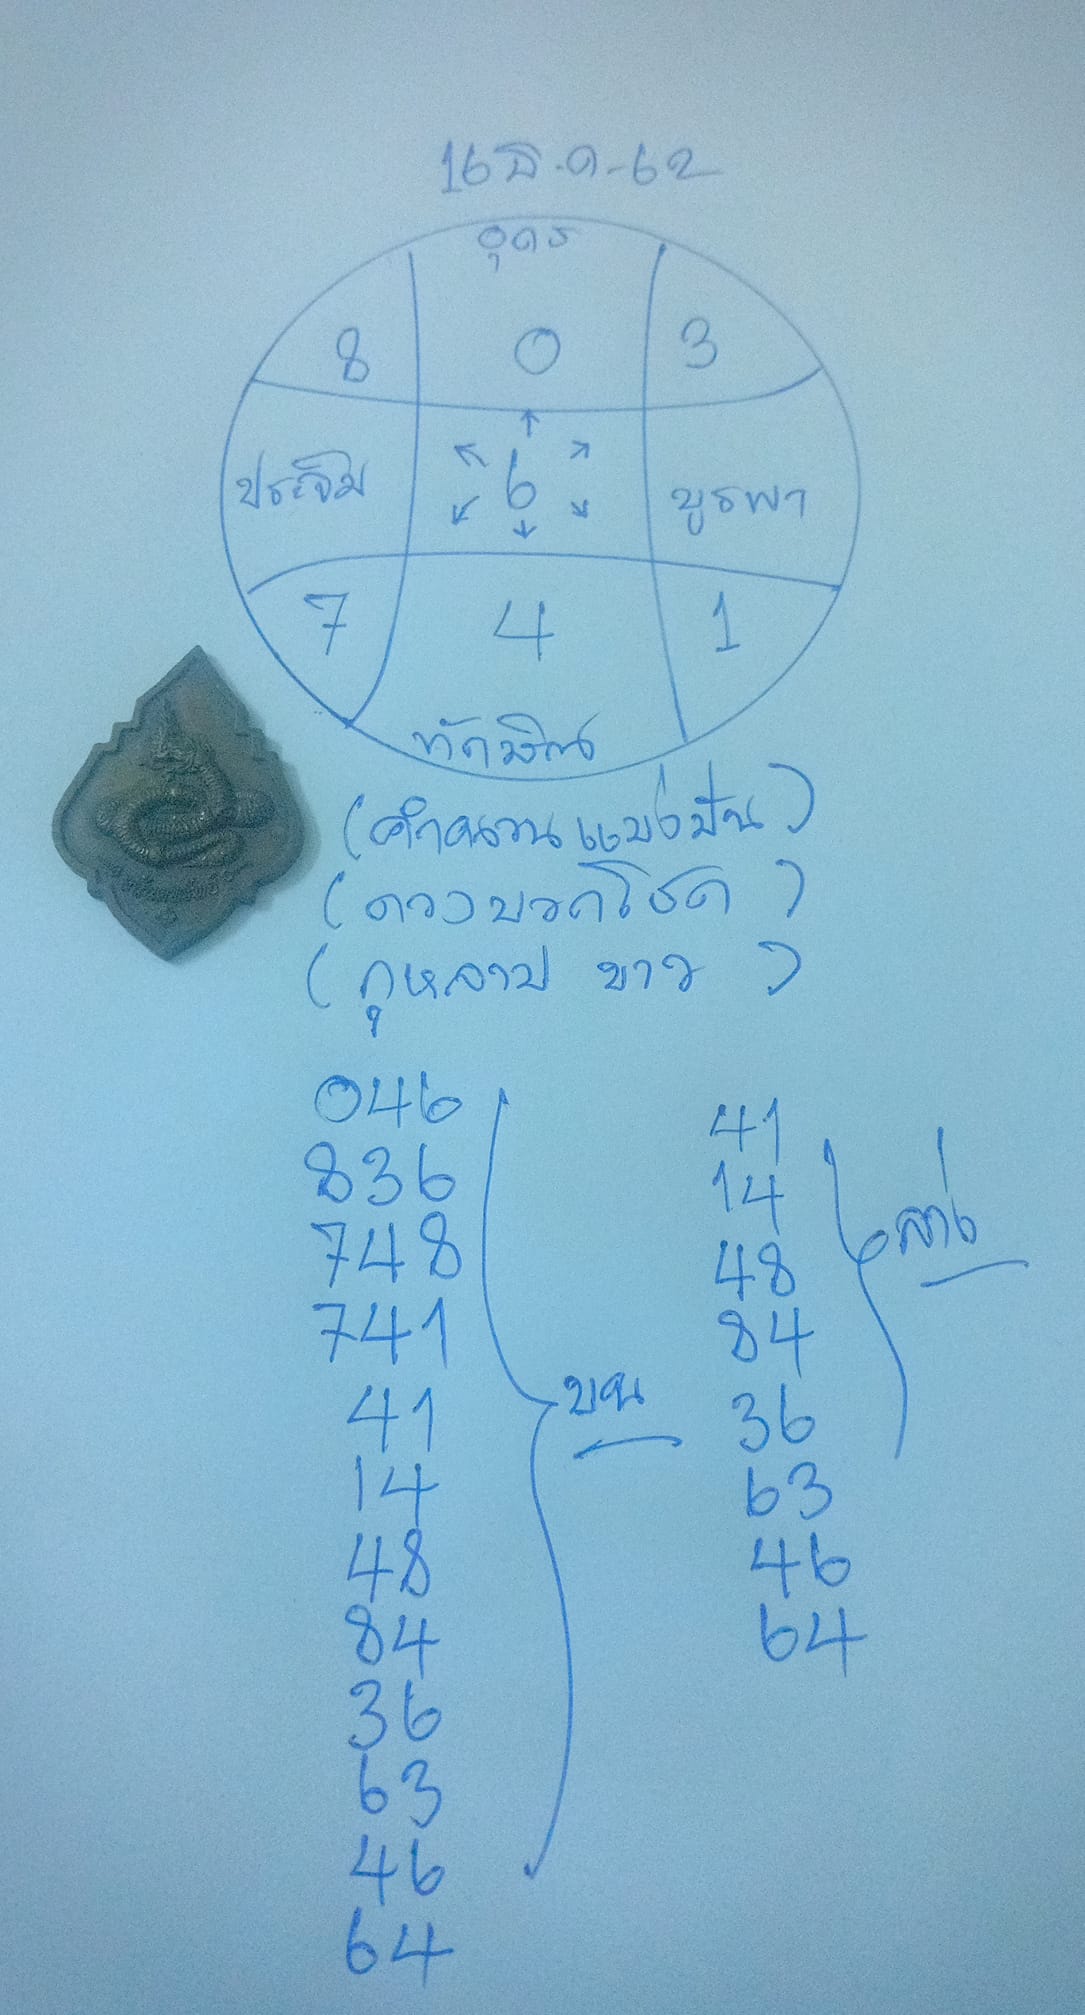 16 ธ.ค-62
อุดร
8 0 3
ประจิม 6 บูรพา
7 4 1
ทักษิณ
(คำนวนแบ่งปัน)
(ดวงบอกโชค)
(กุหลาบ ขาว)
046
836
748
741
41
14
48
84
36
63
46
64
บน
41
14
48
84
36
63
46
64
ล่าง